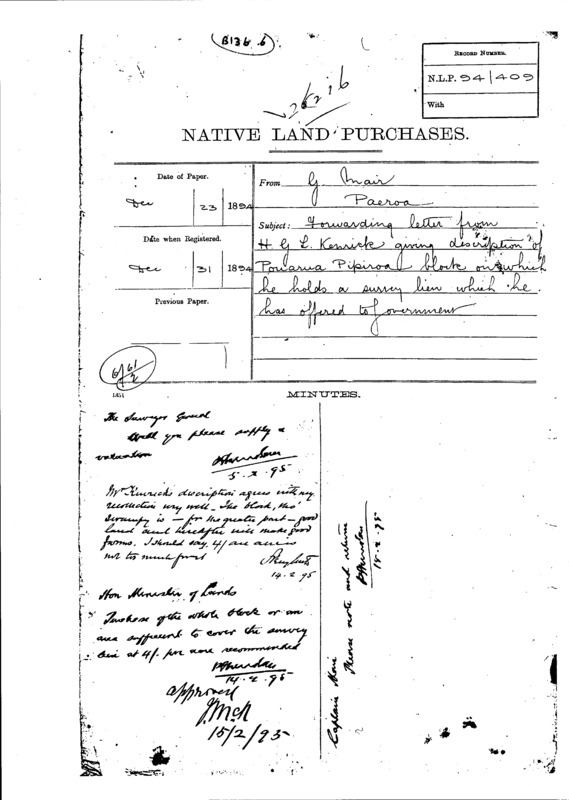 B136.6
RECORD NUMBER.
N.L.P. 94/409
With
NATIVE LAND PURCHASES.
Date of Paper.
Dec 23 1894
Date when Registered.
Dec 31 1894
Previous Paper.
From G. Mair
Paeroa
Subject: Forwarding letter from
H G L. Kenrick giving description of
Pouarua Pipiroa block on which
he holds a survey lien which he
has offered to Government
MINUTES.
The Surveyor General
Will you please supply a
valuation
5.2.95
Mr Kenrick's description agrees with my
recollection very well - The block, tho'
swampy is - for the greater part - good
land and hereafter will make good
farms. I should say, 4/ an acre is
not too much for it
14.2.95
Hon Minister of Lands
Purchase of the whole block or an
area sufficient to cover the survey
lien at 4/. per acre recommended
14.2.95
approved
J McK
15/2/95
Captain Mair
Please note and return
18.2.95